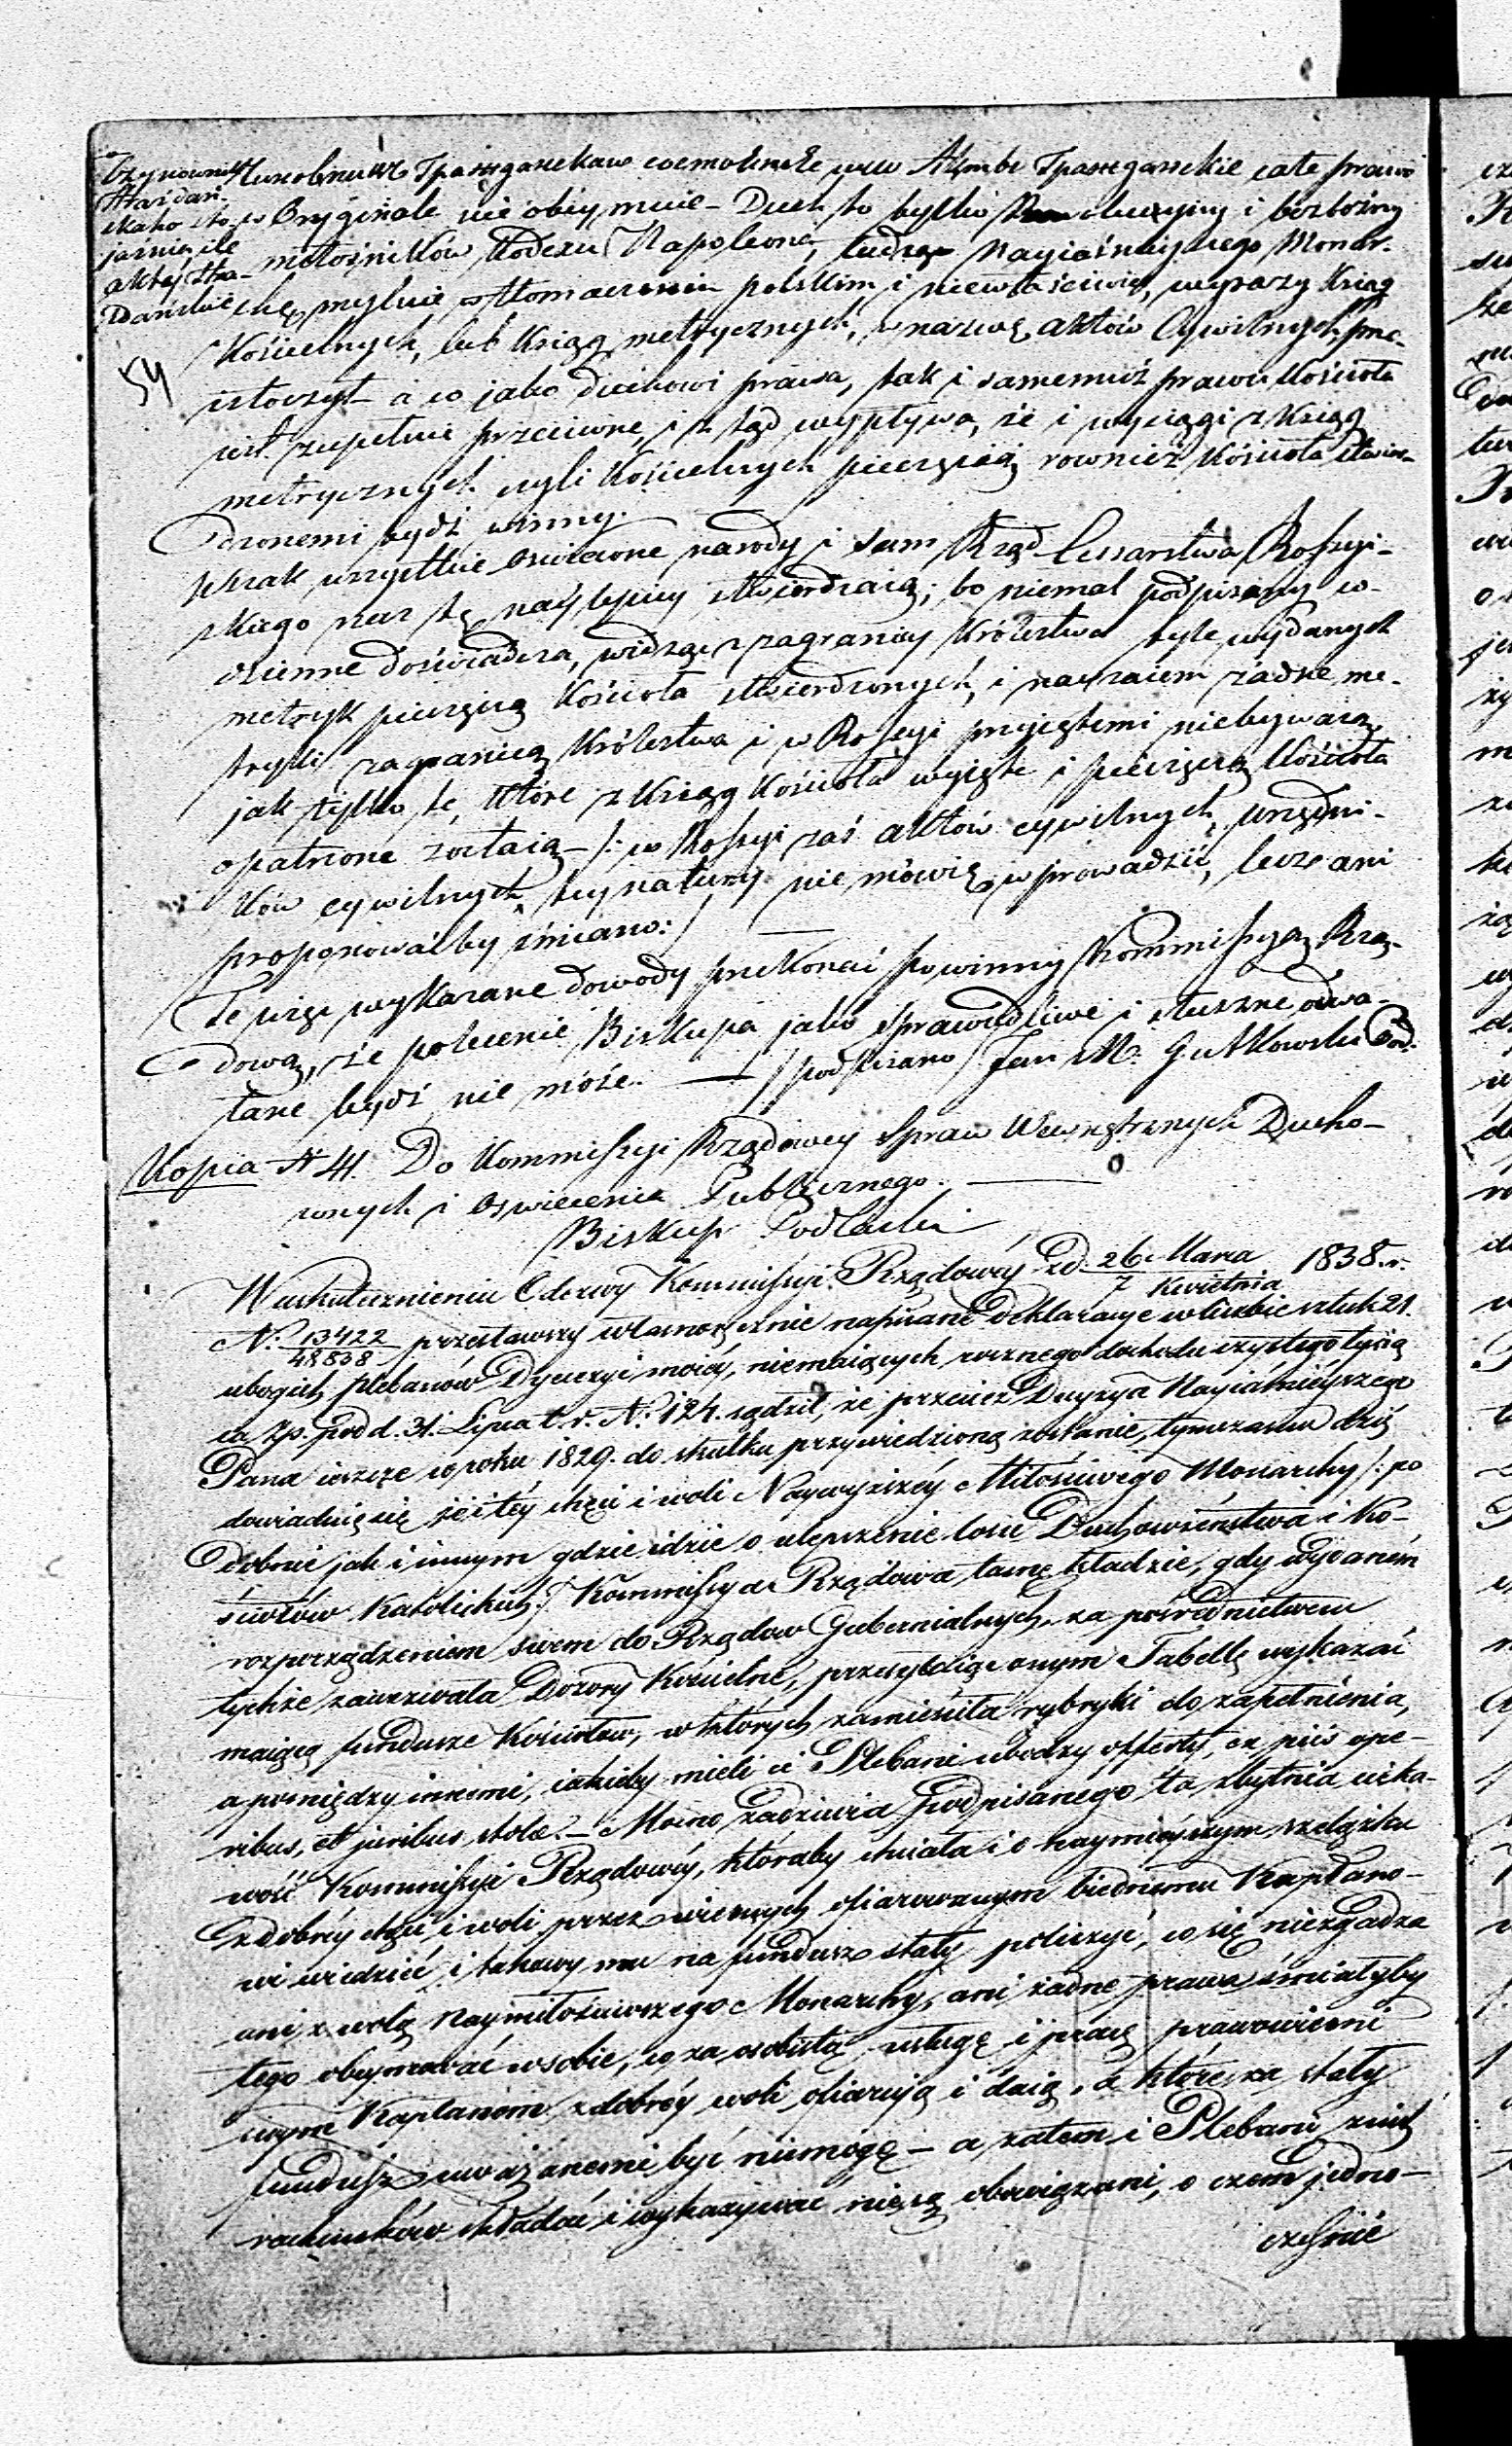 Czynownik
Hrażdań-
skaho sto-
jaśnia, ile
aktaj Hra-
Dańskie
54
cale prawo
w Oryginale nie obeymuie – Duch to tylko Rewolucyiny i bezbożny
miłośników Kodexu Napoleona, łudząc Nayiaśnieyszego Monar-
chę, mylnie w tłomaczeniu polskim i niewłaściwie, wyrazy Ksiąg
Kościelnych, lub Ksiąg metrycznych, w nazwę aktów Cywilnych prze-
istoczył a co jako duchowi prawa, tak i samemuż prawu Kościoła
iest zupełnie przeciwne, i z tąd wypływa, że i wyciągi z Ksiąg
metrycznych czyli Kościelnych pieczęcią rownież Kościoła stwier-
dzonemi bydź winny.
Wszak wszystkie oświecone narody i sam Rząd Cesarstwa Rossyi-
skiego rzecz tę naylepiey stwierdzaią; bo niemal podpisany co-
dzienne doświadcza, widząc z zagranicy Królestwa tyle wydanych
metryk pieczęcią Kościoła stwierdzonych, i nawzaiem żadne me-
tryki zagranicą Królestwa i w Rossyi przyiętemi niebywaią,
jak tylko te, które z Ksiąg Kościoła wyięte i pieczęcią Kościoła
opatrzone zostaią – /: w Rossyi zaś aktów cywilnych, urzędni-
ków cywilnych tey natury nie mówię wprowadzić, lecz ani
proponowaćby śmiano :/ —
Te więc wykazane dowody przekonać powinny Kommissyą Rzą-
dową, że polecenie Biskupa jako sprawiedliwe i słuszne odwo-
łane bydź nie może. — /podpisano/ Jan M. Gutkowski B. Pod.
Kopia N 41. Do Kommissyi Rządowey Spraw Wewnętrznych Ducho-
wnych i Oświecenia Publicznego. —
Biskup Podlaski
W uskutecznieniu Odezwy Kommissyi Rządowéy z d. 26 Marca / 7 Kwietnia 1838. r.
N.º 13422 / 48838 przesławszy własnoręcznie napisane deklaracye w liczbie sztuk 21.
ubogich plebanów Dyecezyi moiéy, niemaiących rocznego dochodu czystego tysią-
ca złp. pod d. 31. Lipca t. r. N.º 124. sądził, że przecież Decyzya Nayiaśnieyszego
Pana ieszcze w roku 1829. do skutku przywiedzioną zostanie, tymczasem dziś
dowiaduię się że i téy chęci i woli Naywyższéy Miłościwego Monarchy /: po
dobnie jak i innym gdzie idzie o ulepszenie losu Duchowieństwa i Ko-
ściołów Katolickich :/ Kommissya Rządowa tamę kładzie, gdy wydanem
rozporządzeniem swem do Rządow Gubernialnych, za pośrednictwem
tychże zawezwała Dozory Kościelne, przesyłaiąc onym Tabellę wykazać
maiącą fundusze Kościołow, w których zamieściła rybryki do zapełnienia,
a pomiędzy innemi, iakieby mieli ci Plebani ubodzy offerty, ex piis ope-
ribus, et juribus stolae. – Mocno zadziwia podpisanego ta zbytnia cieka-
wość Kommissyi Rządowéy, któraby chciała i o naymnieyszym szelążku
z dobréy chęci i woli przez wiernych ofiarowanym biednemu Kapłano-
wi wiedzieć, i takowy mu na fundusz stały policzyć, co się niezgadza
ani z wolą Naymiłościwszego Monarchy, ani żadne prawa śmiałyby
tego obeymować w sobie, co za osobistą usługę i pracę prawowierni
swym Kapłanom z dobréy woli ofiarują i daią, a które za stały
fundusz uważanemi być niemogą – a zatem i Plebani z nich
rachunków składać i wykazywać nie są obowiązani, o czem jedno-
cześnie